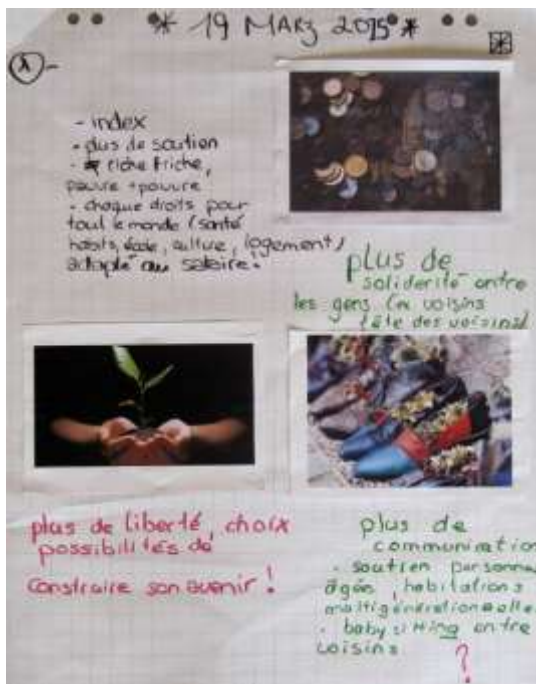 * 19 MARZ 2015 *
1 -
- index
- plus de soutien
- riche + riche,
pauvre + pauvre
- chaque droits pour
tout le monde (santé
habits, école, culture, logement)
adapté au salaire!
plus de
soliderité entre
les gens (ex voisins
fête des voisins)
plus de liberté, choix
possibilités de
construire son avenir!
plus de
communication
- soutien personnes
âgés, habitations
multigénérationelle
- babysitting entre
voisins
?